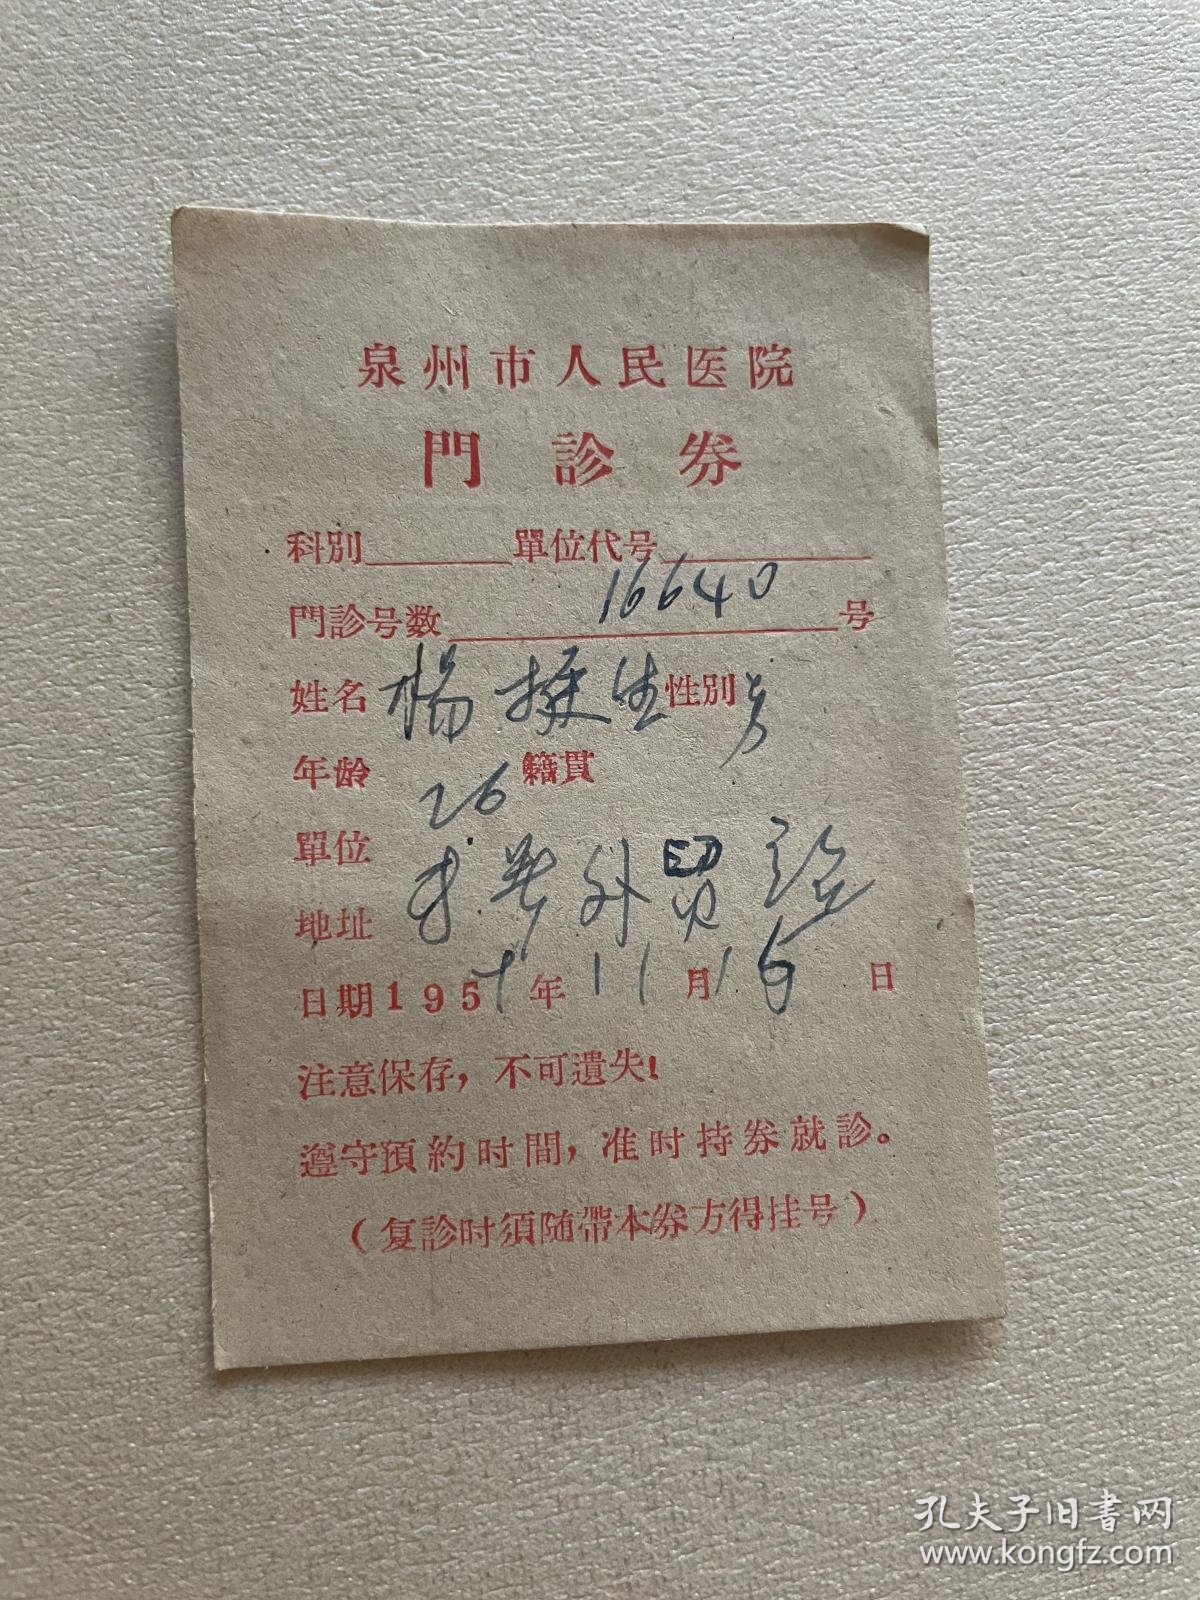 泉州市人民医院
門診券
科別 單位代号
門診号数 16640 号
姓名 楊振生 性別 男
年龄 26 籍貫
單位
地址 外貿站
日期 195 年 11 月 16 日
注意保存，不可遺失！
遵守預約时間，准时持券就診。
（复診时須随帶本券方得挂号）
孔夫子旧書网
www.kongfz.com